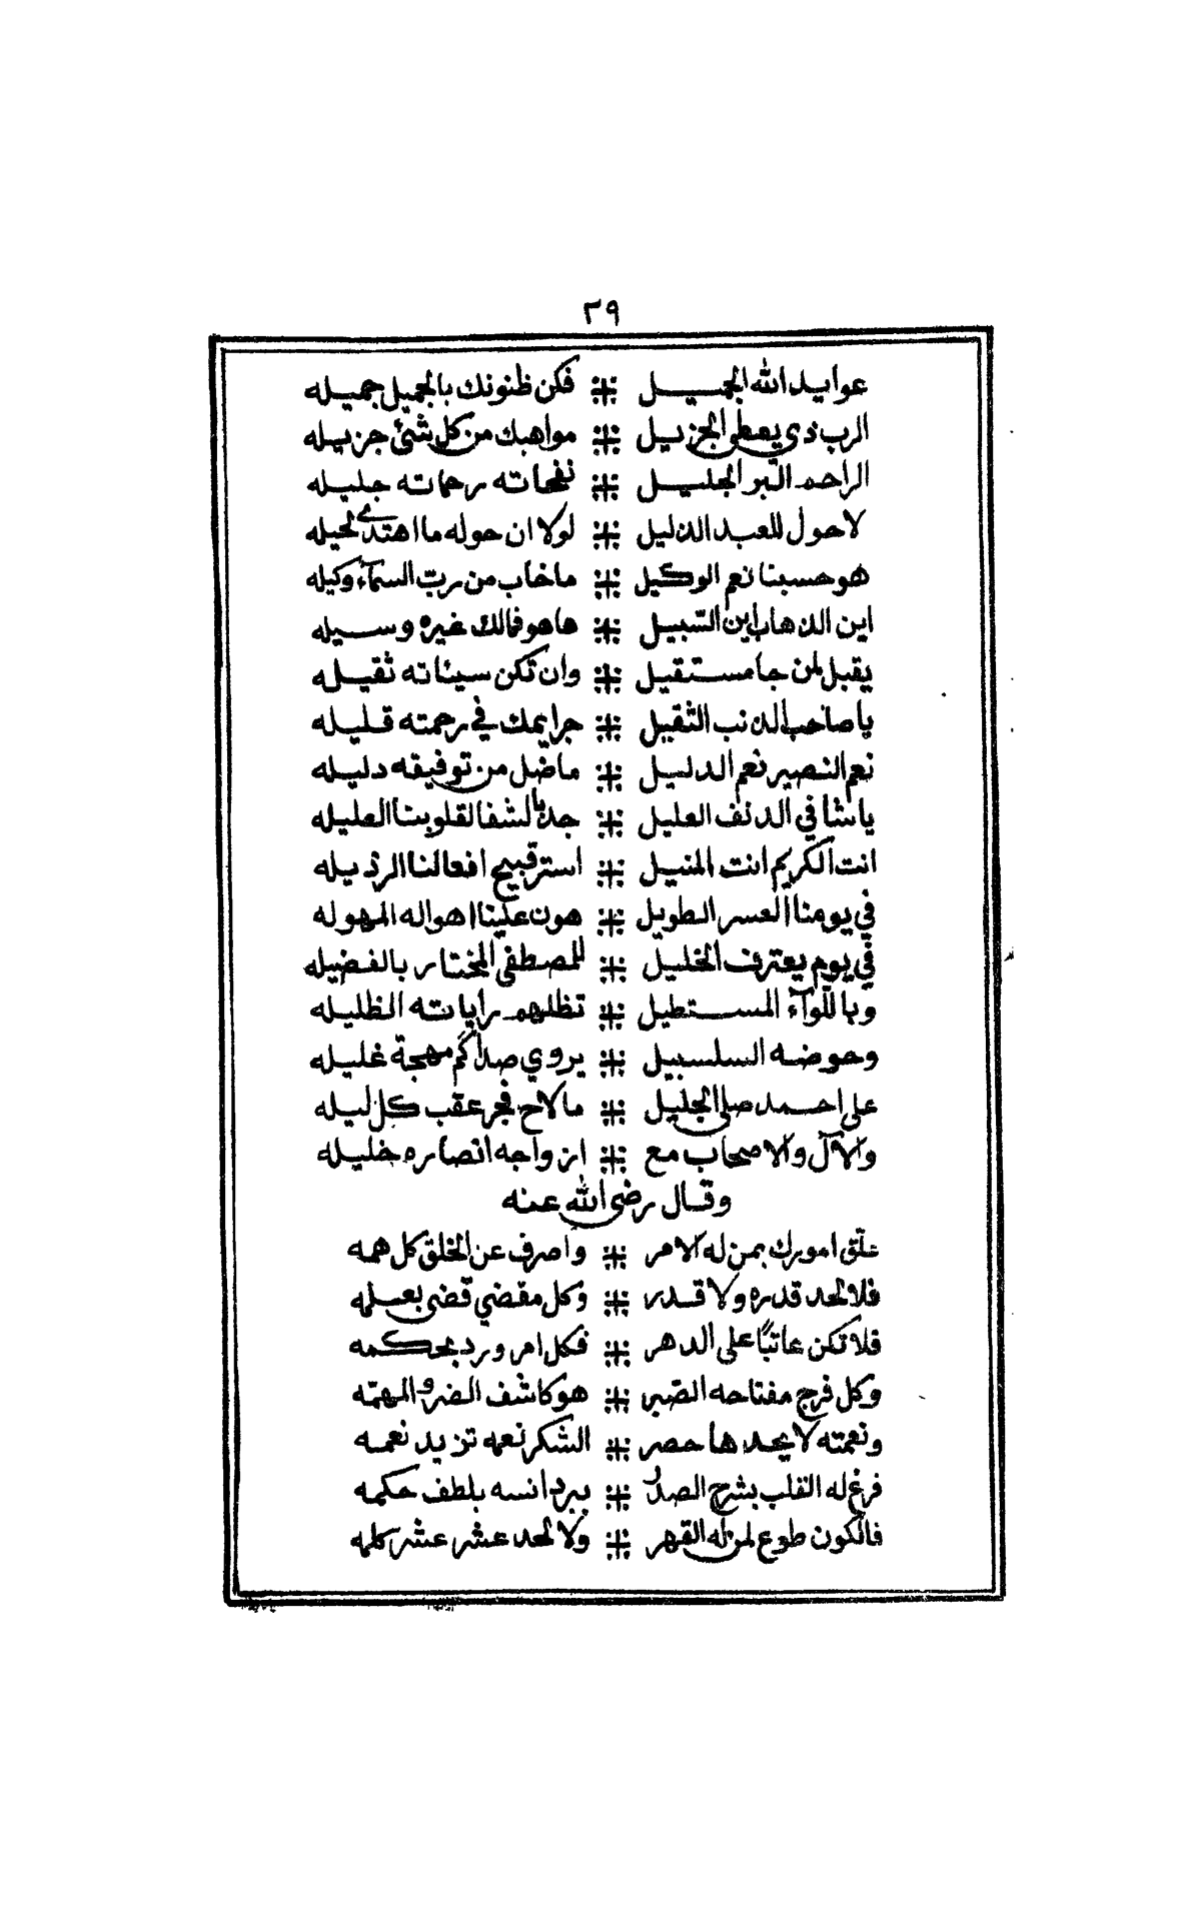 ٣٩
عوايد الله الجميل فكن ظنونك بالجميل جميله
الرب ذي يعطي الجزيل مواهبك من كل شئ جزيله
الراحم البر الجليل نفحاته رحماته جليله
لاحول للعبد الذليل لولا ان حوله ما اهتدى لحيله
هو حسبنا نعم الوكيل ما خاب من رب السمآء وكيله
اين الذهاب اين السبيل ها هو فمالك غيره وسيله
يقبل لمن جا مستقيل وان تكن سيئاته ثقيله
يا صاحب الذنب الثقيل جرايمك في رحمته قليله
نعم النصير نعم الدليل ما ضل من توفيقه دليله
يا شافي الدنف العليل جد بالشفا لقلوبنا العليله
انت الكريم انت المنيل استر قبيح افعالنا الرذيله
في يومنا العسر الطويل هون علينا اهواله المهوله
في يوم يعترف الخليل للمصطفى المختار بالفضيله
وباللوآء المستطيل تظلهم راياته الظليله
وحوضه السلسبيل يروي صداكم مهجة غليله
على احمد صلى الجليل ما لاح فجر عقب كل ليله
والآل والاصحاب مع ازواجه انصاره خليله
وقال رضي الله عنه
علّق امورك بمن له الامر واصرف عن الخلق كل همه
فلا لحد قدره ولا قدر وكل مقضي قضى بعلمه
فلا تكن عاتبًا على الدهر فكل امر ورد بحكمه
وكل فرج مفتاحه الصبر هو كاشف الضر والمهمّه
ونعمته لا يحدها حصر الشكر نعمه تزيد نعمه
فرغ له القلب بشرح الصدر ببرد انسه بلطف حكمه
فالكون طوع لمن له القهر ولا لحد عشر عشر كلمه